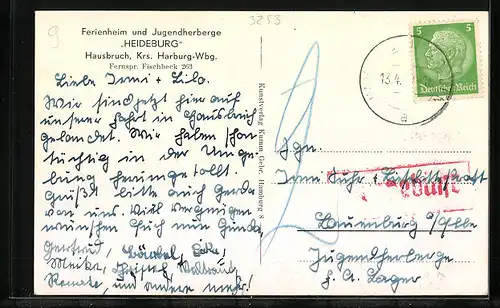 9
3253
Ferienheim und Jugendherberge
„HEIDEBURG"
Hausbruch, Krs. Harburg-Wbg.
Fernspr. Fischbeck 263
Liebe Irmi + Lilo.
Wir sind jetzt hier auf
unserer Fahrt in Hausbruch
gelandet. Wir haben schon
tüchtig in der Umge-
bung herumgetollt.
Grüßt bitte auch Gerda
von uns. Viel Vergnügen
wünschen Euch nun Günter,
Gertrud, Bärbel,
Meike, Christel, Waltraut,
Renate, und andere mehr!
Kunstverlag Kumm, Gebr. Hamburg 8
5 5
Deutsches Reich
13.4.
a
Irme Suhr +
Lauenburg a/Elbe
Jugendherberge
Lager